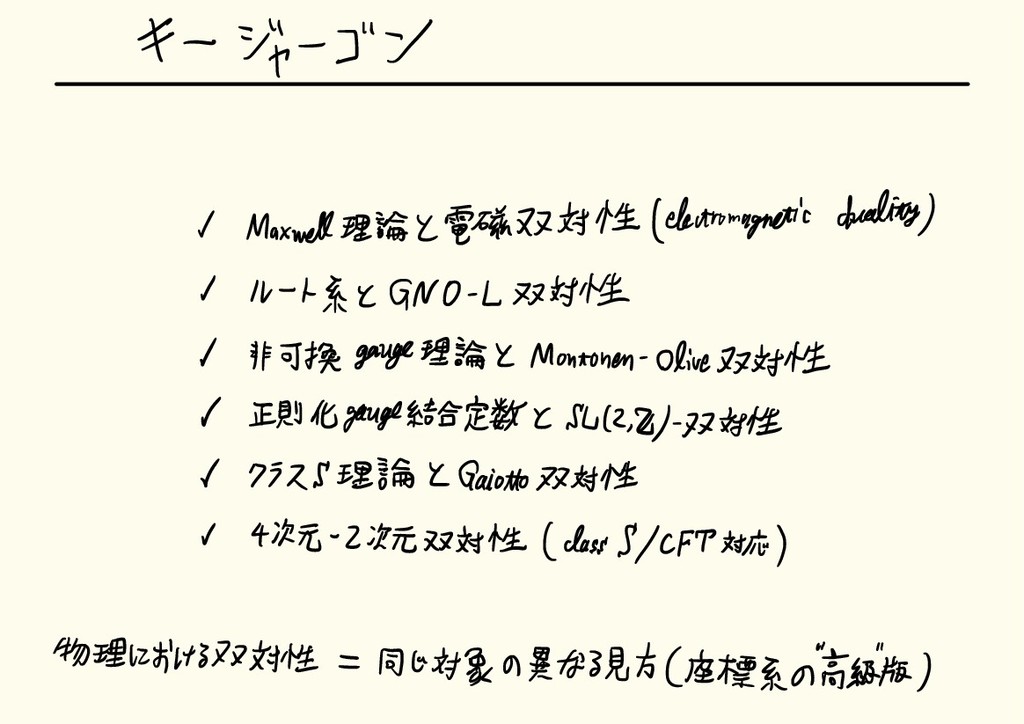 キージャーゴン
✓ Maxwell理論と電磁双対性(electromagnetic duality)
✓ ルート系とGNO-L双対性
✓ 非可換gauge理論とMontonen-Olive双対性
✓ 正則化gauge結合定数とSL(2,ℤ)-双対性
✓ クラスS理論とGaiotto双対性
✓ 4次元-2次元双対性(class S/CFT対応)
物理における双対性 = 同じ対象の異なる見方(座標系の"高級"版)